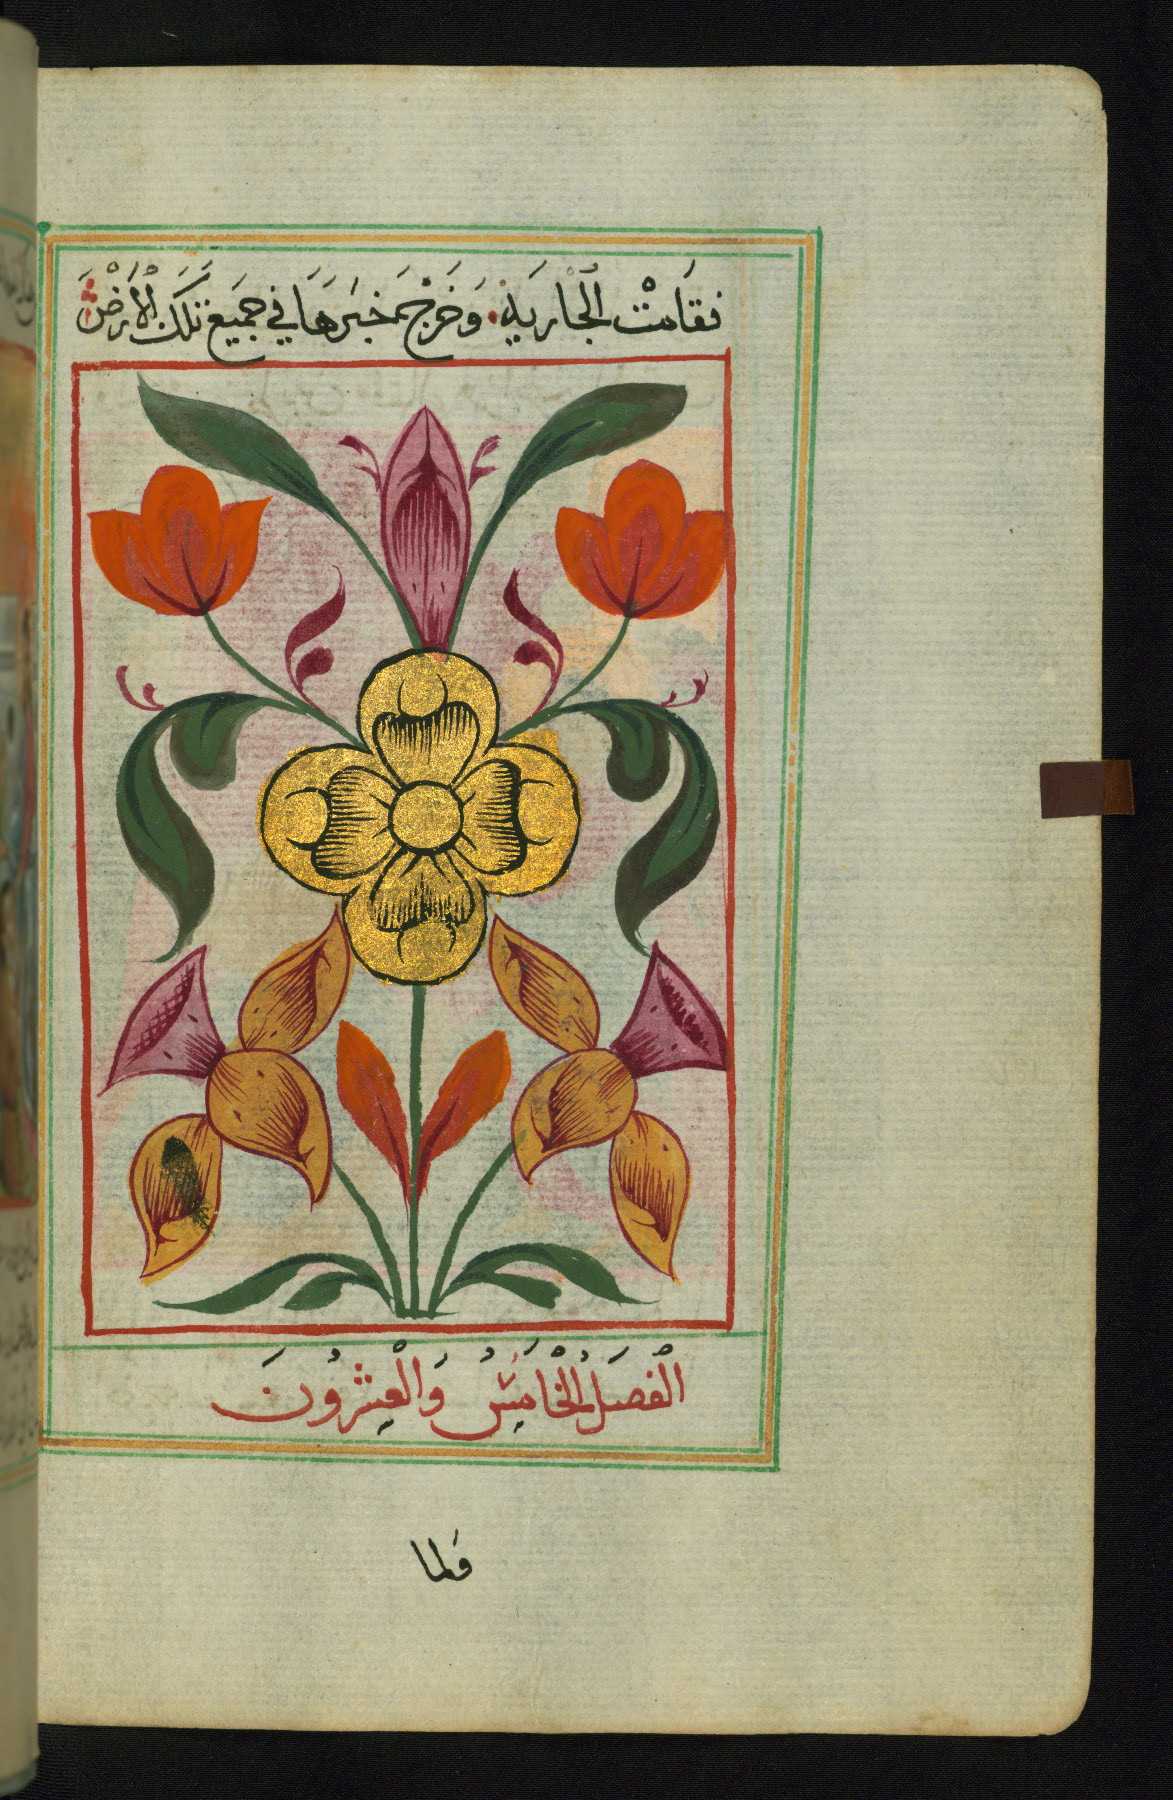 فقامَتْ الجَاريَة وَخَرَجْ خبَرهَا في جَميَع تلَكَ الأرَضْ
الْفصَلُ الْخَامِسُ وَالْعِشرُونَ
فَلما